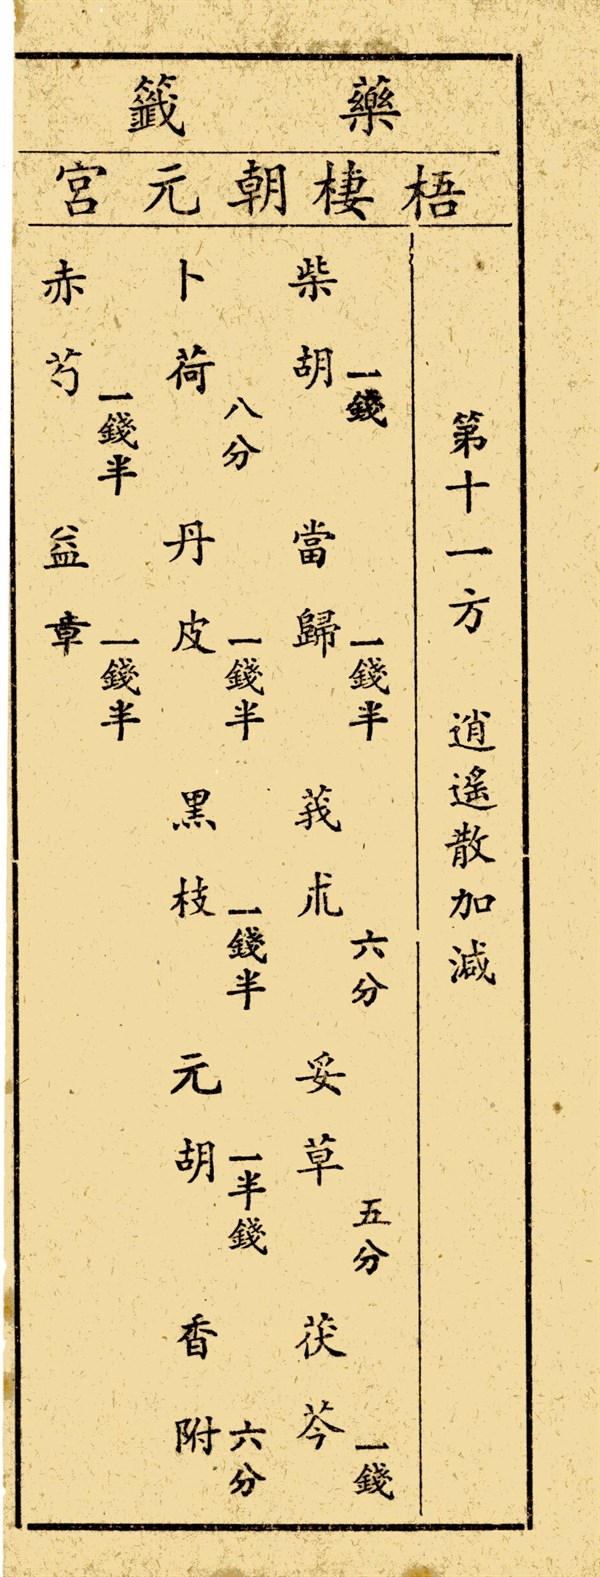 藥籤
梧棲朝元宮
第十一方 逍遙散加減
柴胡一錢 當歸一錢半 莪朮六分 妥草五分 茯苓一錢
卜荷八分 丹皮一錢半 黑枝一錢半 元胡一半錢 香附六分
赤芍一錢半 益章一錢半